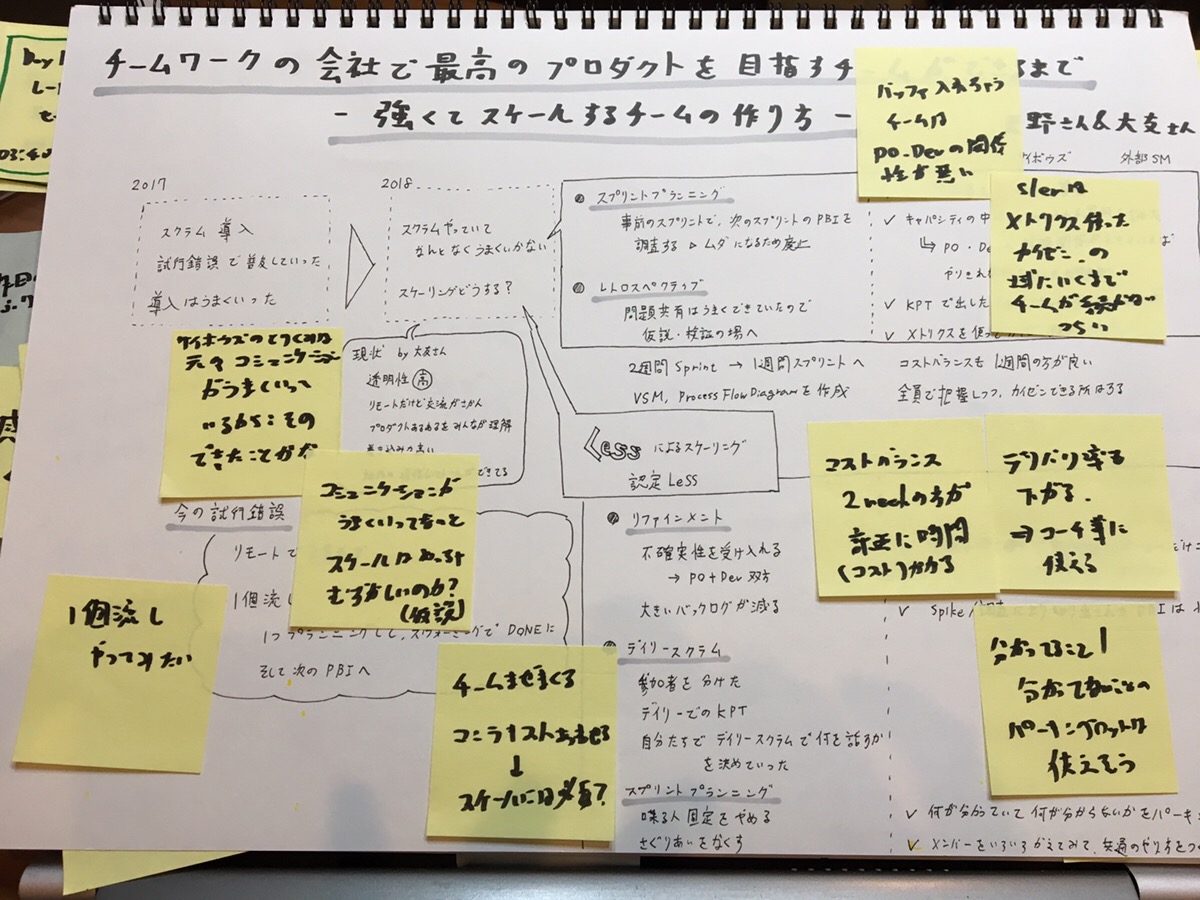 チームワークの会社で最高のプロダクトを目指すチ
まで
- 強くてスケールするチームの作り方 -
野さん&大友さん
イボウズ 外部SM
バッファ入れちゃう
チームは
PO-Devの関係
性が悪い
SIerは
メトリクス使った
カイゼン の
域にいくまで
チームが
つらい
2017
スクラム導入
試行錯誤で普及していった
導入はうまくいった
2018
スクラムやっていて
なんとなくうまくいかない
スケーリングどうする?
スプリントプランニング
事前のスプリントで、次のスプリントのPBIを
調査する ▷ ムダになるため廃止
レトロスペクティブ
問題共有はうまくできていたので
仮説・検証の場へ
✓ キャパシティの中
↳ PO・De
やりきれ
✓ KPTで出した
✓ メトリクスを使って
2週間Sprint → 1週間スプリントへ
VSM, Process Flow Diagramを作成
コストバランスも1週間の方が良い
全員で把握しつつ、カイゼンできる所はする
サイボウズのてりくみは
元々コミュニケーション
がうまくいって
いるからこその
できたことかな
現状 by 大友さん
透明性 高
リモートだけど交流がさかん
プロダクトあるあるをみんなが理解
できてる
Lessによるスケーリング
認定LeSS
コミュニケーションが
うまくいってないと
スケールはめっちゃ
むずかしいのか?
(仮説)
今の試行錯誤
リモートで
1個流し
1つプランニングして、スウォーミングでDONEに
そして次のPBIへ
1個流し
やってみたい
チームまぜまくる
コンテキストあわせる
↓
スケールには必要?
リファインメント
不確実性を受け入れる
→ PO+Dev 双方
大きいバックログが減る
デイリースクラム
参加者を分けた
デイリーでのKPT
自分たちでデイリースクラムで何を話すか
を決めていった
スプリントプランニング
喋る人固定をやめる
さぐりあいをなくす
コストバランス
2weekの方が
に時間
(コスト)かかる
デリバリ
下がる.
⇒コーチ等に
使える
✓ Spike
分かってること/
分かってないことの
パーキングロットは
使えそう
✓ 何が分かっていて何が分からないかをパーキ
✓ メンバーをいろいろかえてみて、共通のやり方をつ